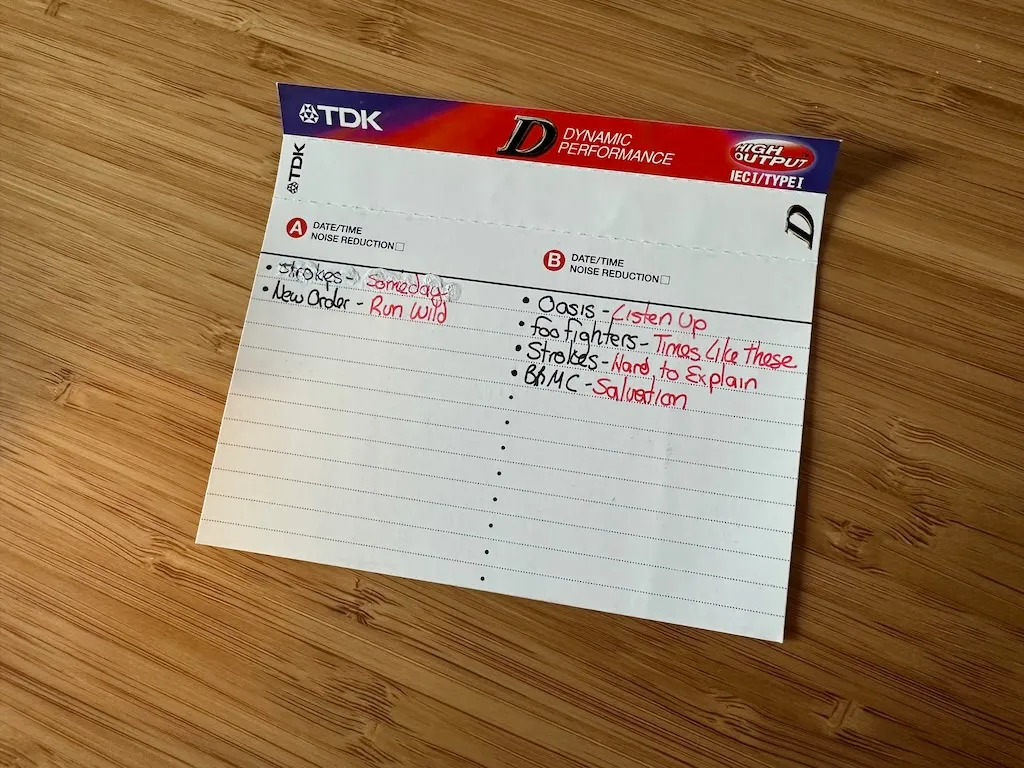 TDK
D DYNAMIC
PERFORMANCE
HIGH
OUTPUT
IEC I/TYPE I
TDK
D
A DATE/TIME
NOISE REDUCTION
• Strokes - Someday
• New Order - Run Wild
B DATE/TIME
NOISE REDUCTION
• Oasis - Listen Up
• foo fighters - Times Like these
• Strokes - Hard to Explain
• BRMC - Salvation